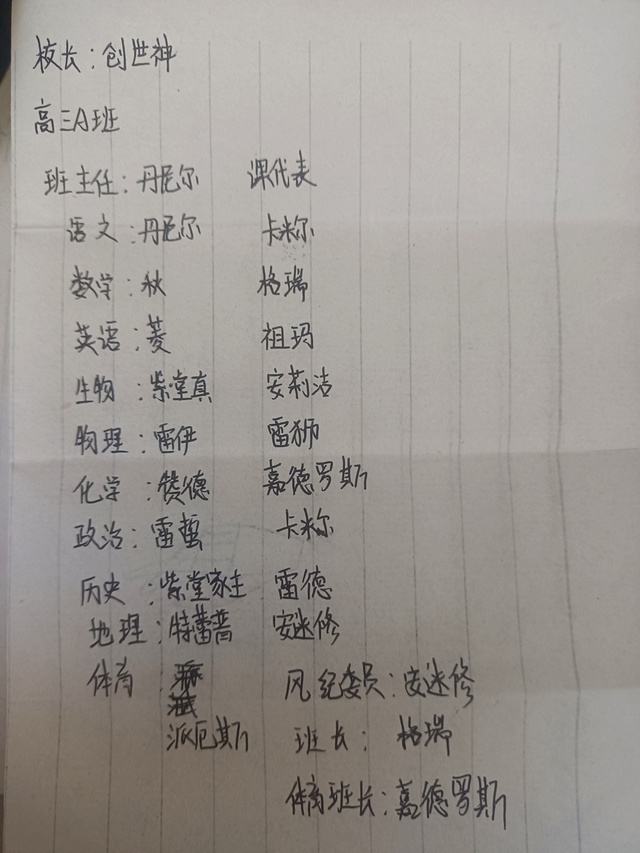 校长：创世神
高三A班
班主任：丹尼尔 课代表
语文：丹尼尔 卡米尔
数学：秋 格瑞
英语：菱 祖玛
生物：紫堂真 安莉洁
物理：雷伊 雷狮
化学：赞德 嘉德罗斯
政治：雷蛰 卡米尔
历史：紫堂家主 雷德
地理：特蕾普 安迷修
体育： 风纪委员：安迷修
派厄斯 班长：格瑞
体育班长：嘉德罗斯